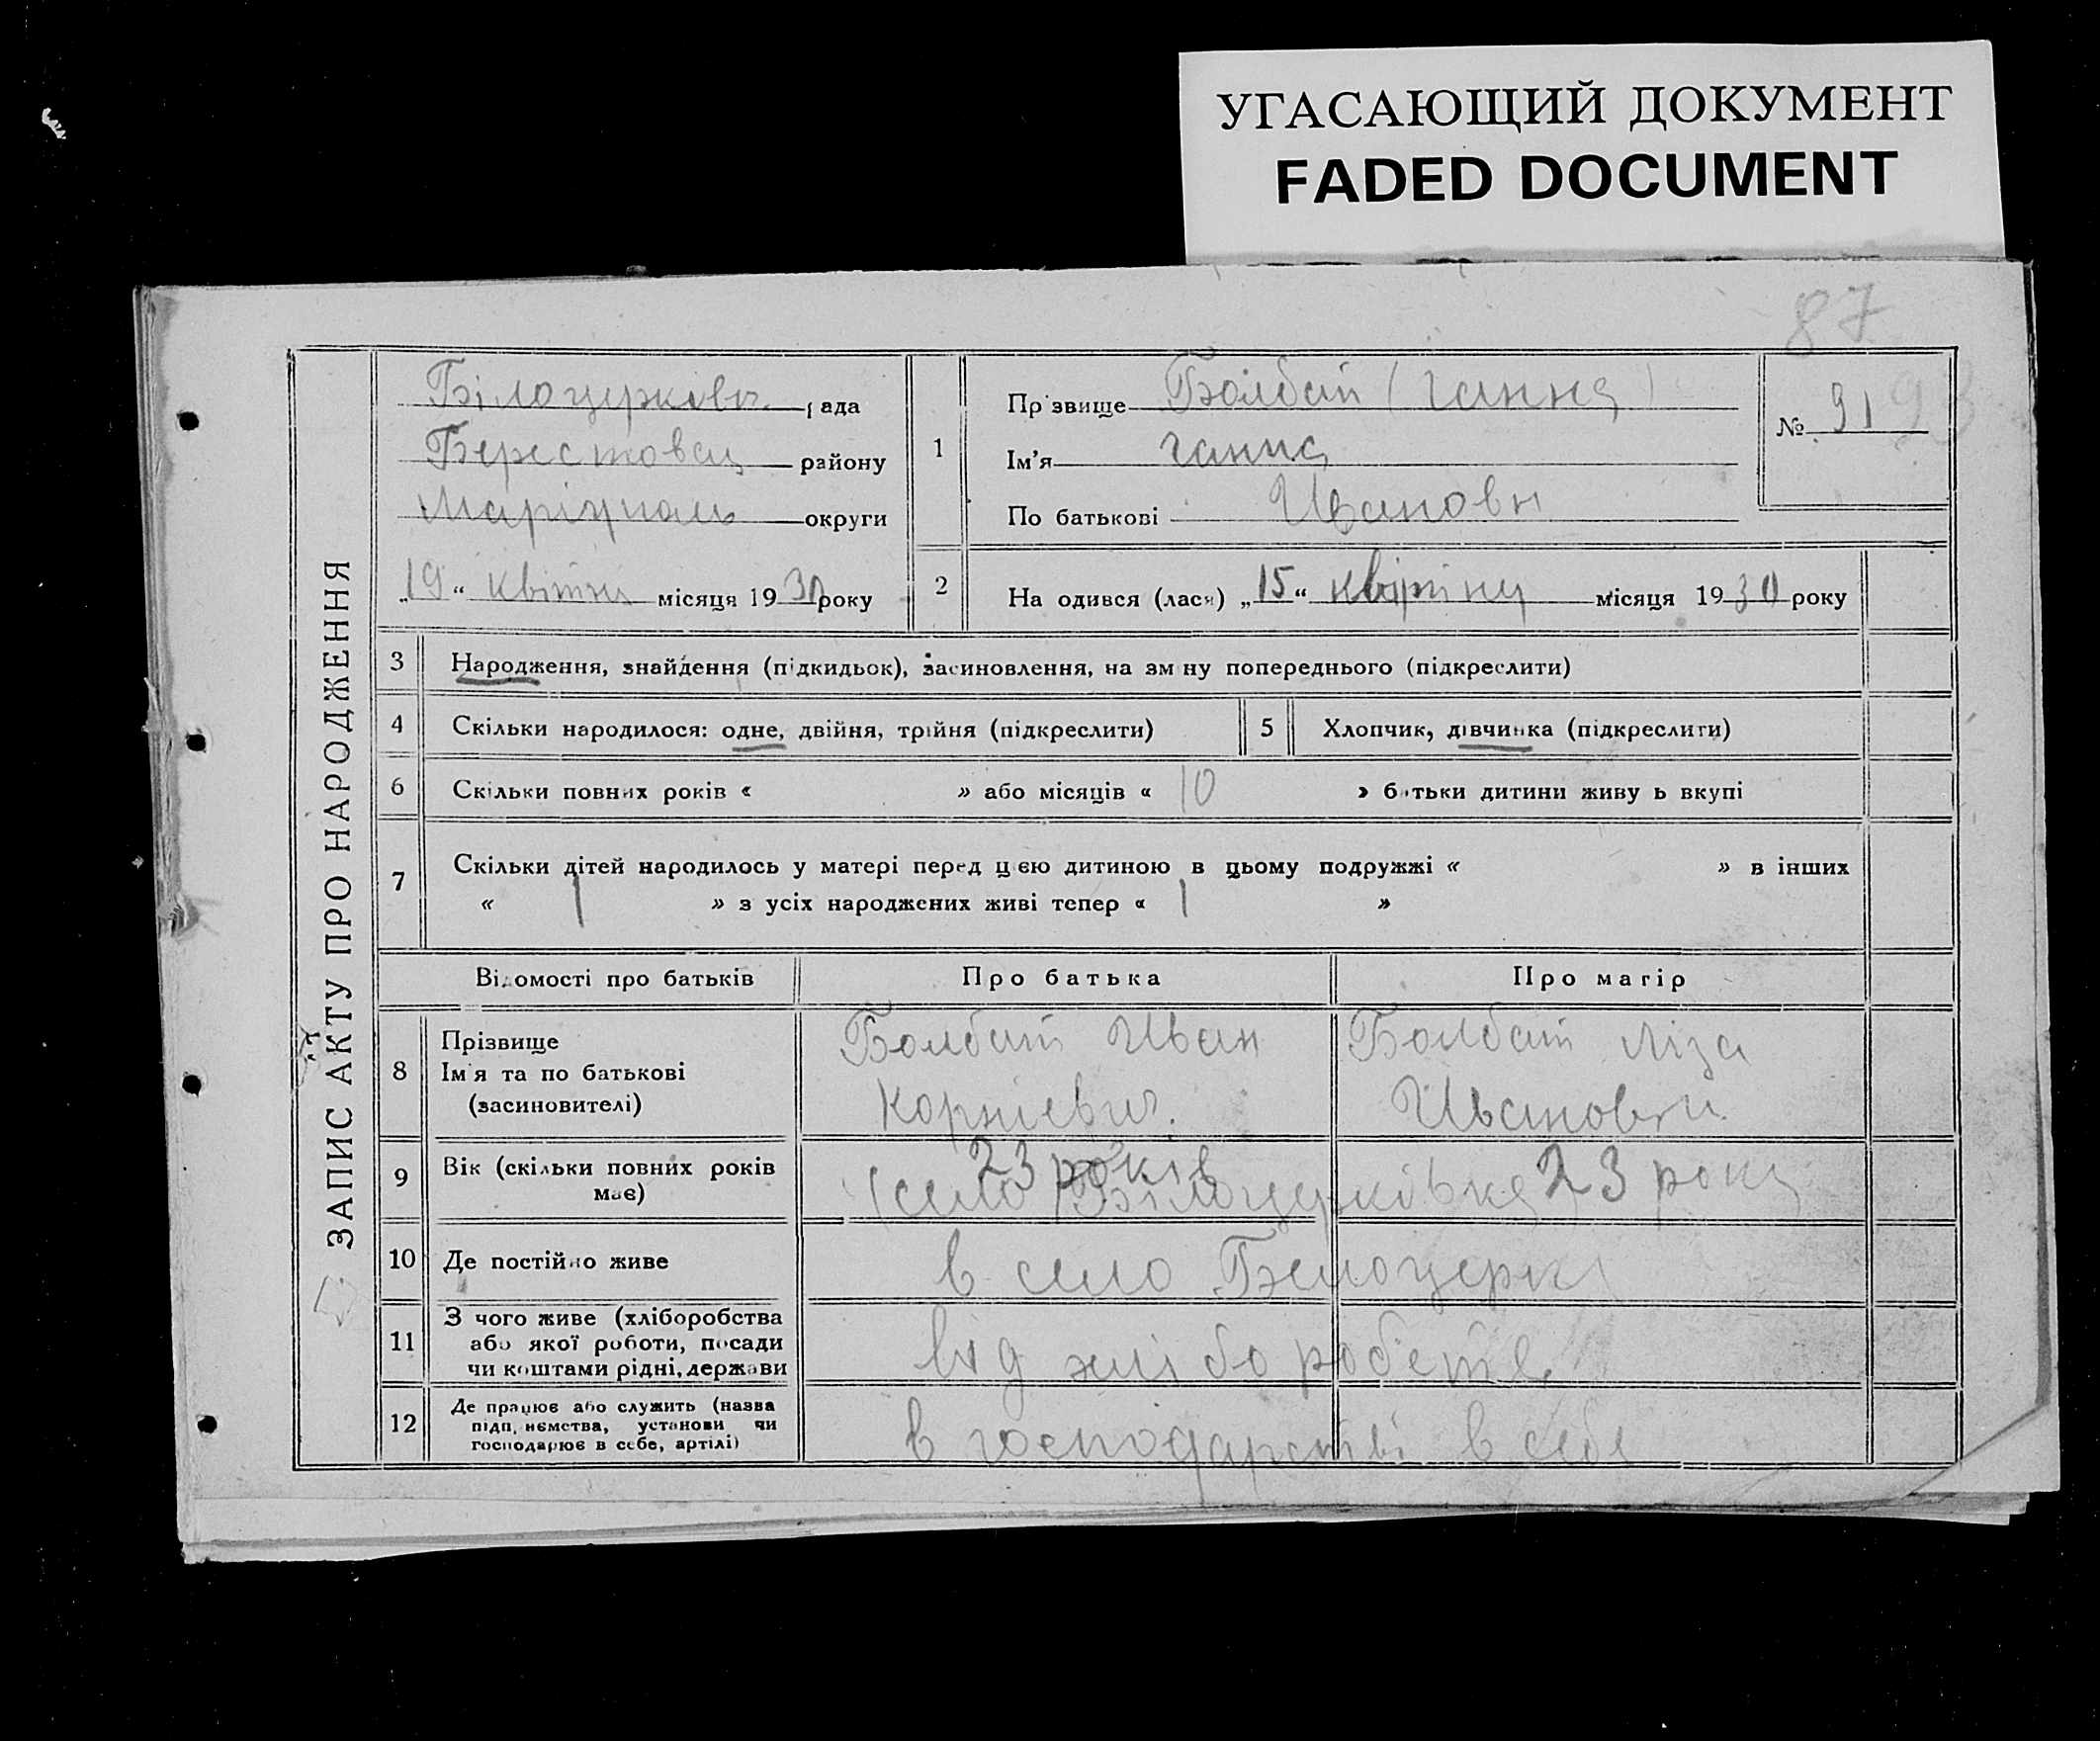 УГАСАЮЩИЙ ДОКУМЕНТ
FADED DOCUMENT
87
ЗАПИС АКТУ ПРО НАРОДЖЕННЯ
Білоцерківс. рада
Берестовец району
Маріуполь округи
„19“ квітня місяця 1930 року
1
Прізвище Болбат (Ганна)
Ім'я Ганна
По батькові Ивановн
№ 91 93
2
На одився (лася) „15“ квітня місяця 1930 року
3 Народження, знайдення (підкидьок), засиновлення, на зм ну попереднього (підкреслити)
4 Скільки народилося: одне, двійня, трійня (підкреслити)
5 Хлопчик, дівчинка (підкреслити)
6 Скільки повних років « » або місяців « 10 » батьки дитини живу ь вкупі
7 Скільки дітей народилось у матері перед цією дитиною в цьому подружжі « » в інших
« 1 » з усіх народжених живі тепер « 1 »
Відомості про батьків Про батька Про матір
8 Прізвище
Ім'я та по батькові
(засиновителі)
Болбат Иван
Корнієвич.
Болбат Ліза
Ивановн
9 Вік (скільки повних років
має)
23 років
(село Білоцерківка)
23 року
10 Де постійно живе
в село Белоцерк
11 З чого живе (хліборобства
або якої роботи, посади
чи коштами рідні, держави
від хліборобств
12 Де працює або служить (назва
підп. немства, установи чи
господарює в себе, артілі)
в господарстві в себе